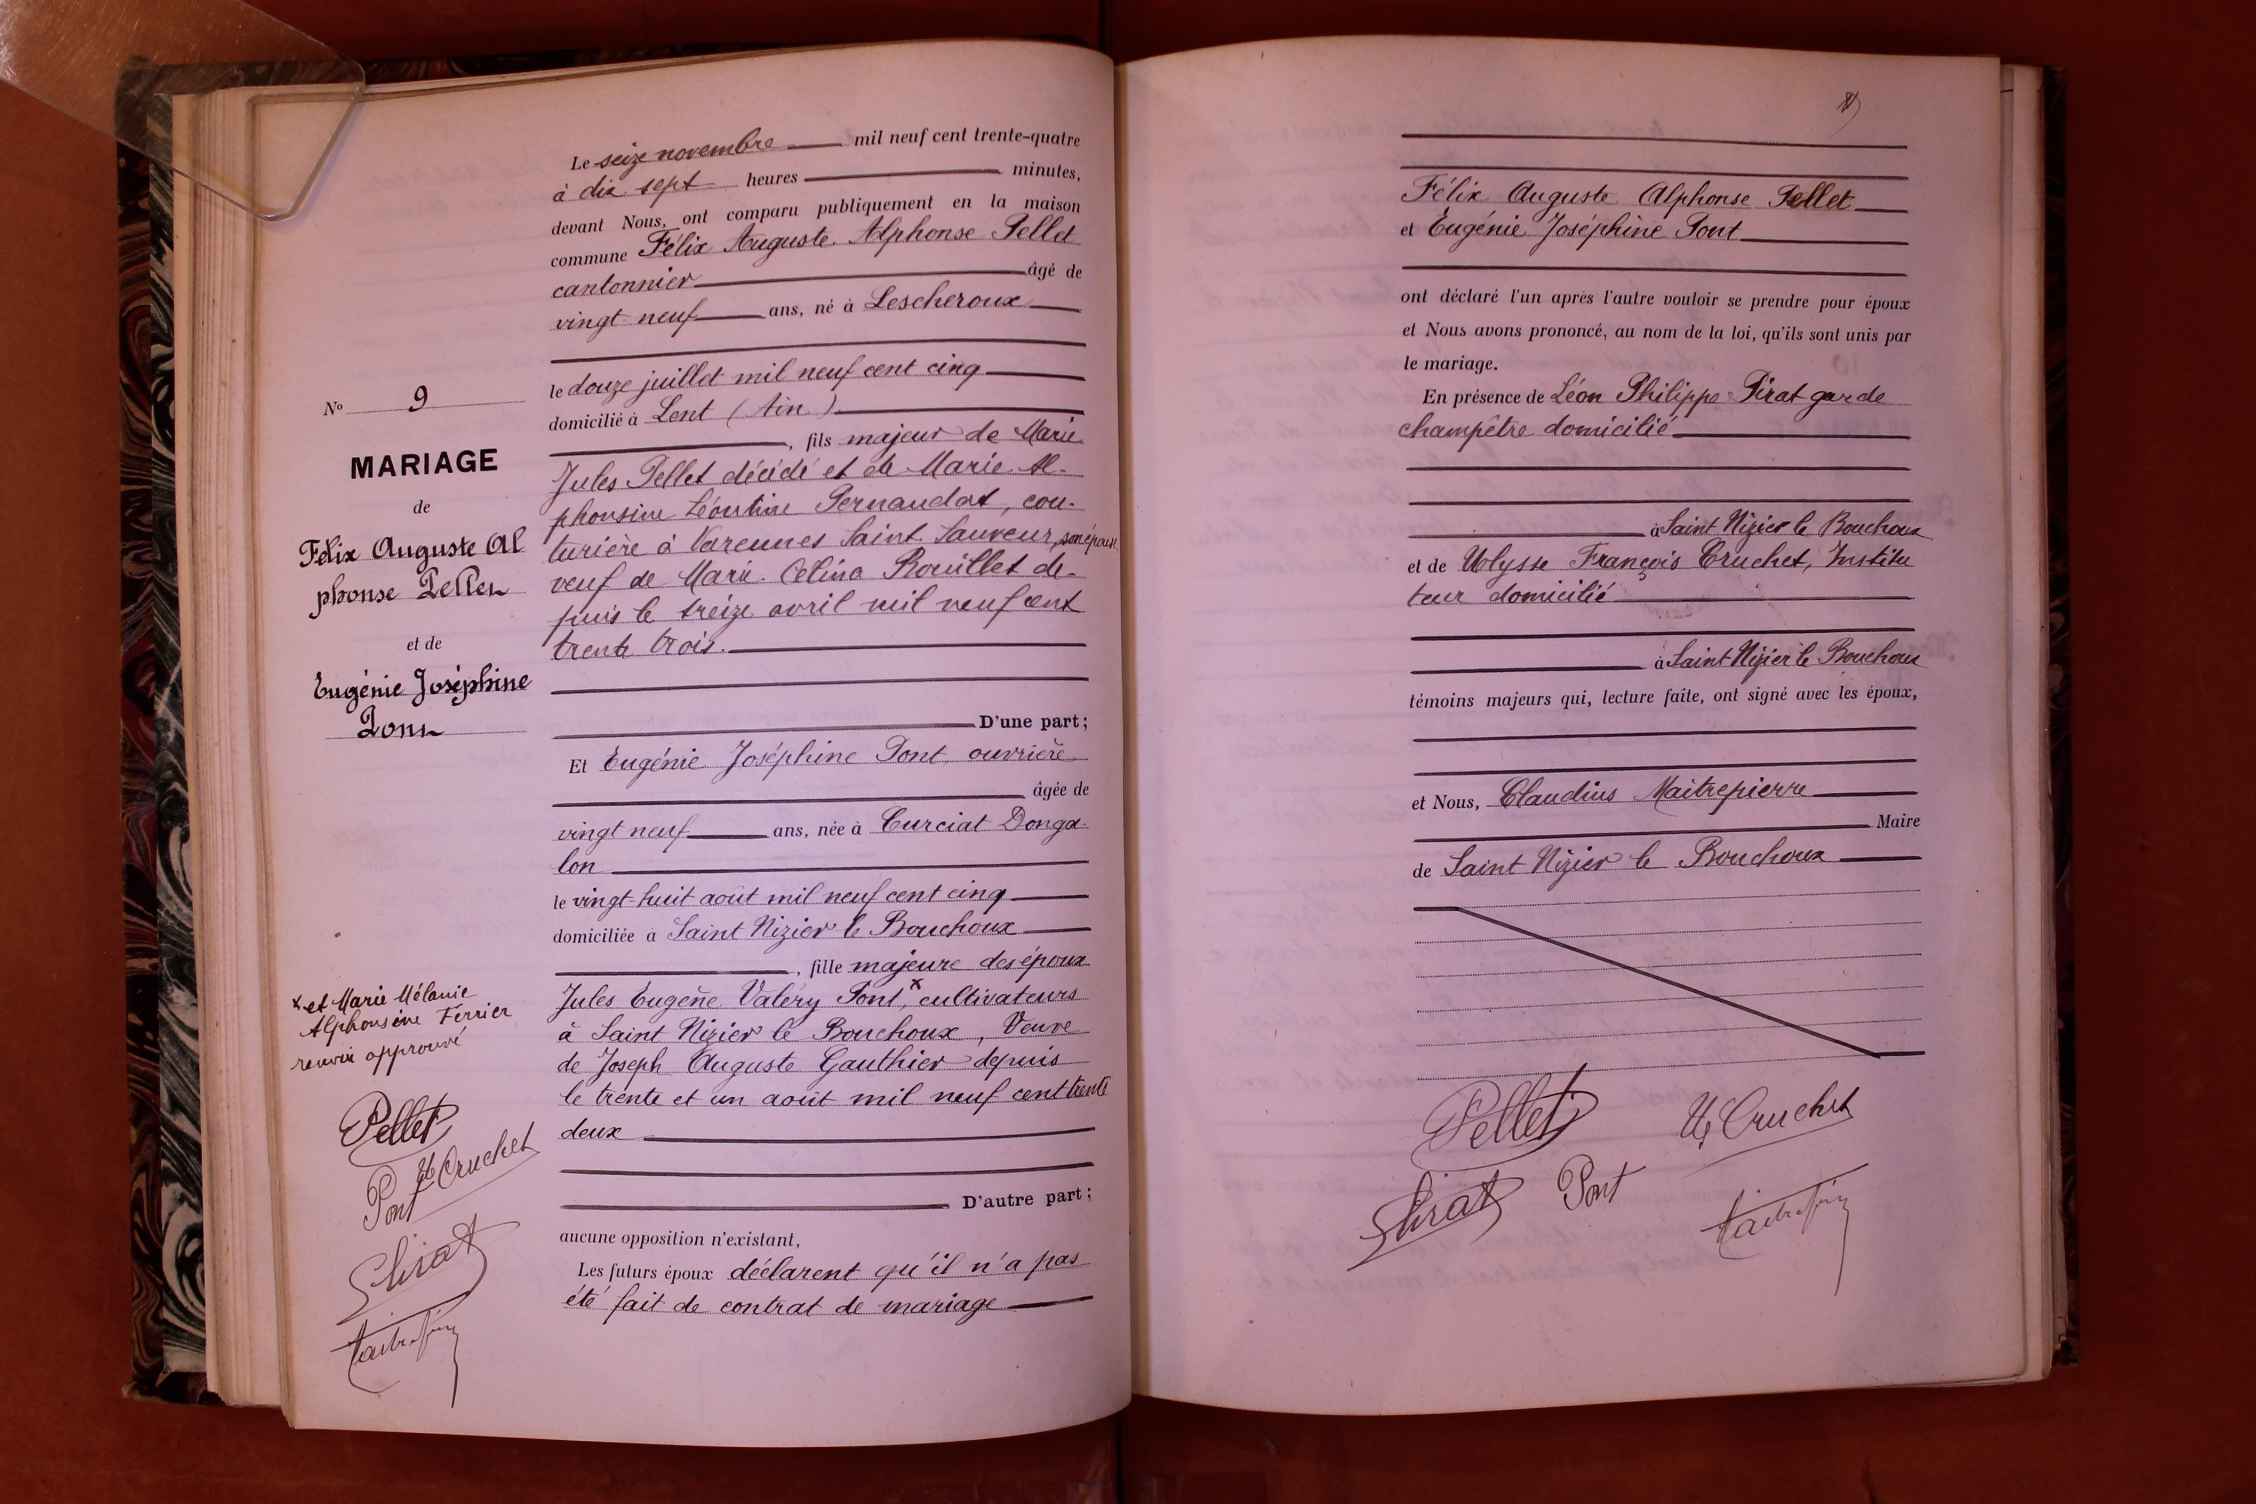 Le seize novembre mil neuf cent trente-quatre
à dix sept heures minutes,
devant Nous, ont comparu publiquement en la maison
commune Félix Auguste Alphonse Pellet
cantonnier âgé de
vingt neuf ans, né à Lescheroux
le douze juillet mil neuf cent cinq
domicilié à Lent (Ain)
, fils majeur de Marie
Jules Pellet décédé et de Marie Al-
phonsine Léontine Pernaudat, cou-
turière à Varennes Saint Sauveur, son épouse
veuf de Marie Célina Rouillet de-
puis le treize avril mil neuf cent
trente trois.
D'une part;
Et Eugénie Joséphine Pont ouvrière
âgée de
vingt neuf ans, née à Curciat Donga-
lon
le vingt-huit août mil neuf cent cinq
domiciliée à Saint Nizier le Bouchoux
, fille majeure des époux
Jules Eugène Valéry Pont, x cultivateurs
à Saint Nizier le Bouchoux, Veuve
de Joseph Auguste Gauthier depuis
le trente et un août mil neuf cent trente
deux
D'autre part;
aucune opposition n'existant,
Les futurs époux déclarent qu'il n'a pas
été fait de contrat de mariage
No 9
MARIAGE
de
Félix Auguste Al
phonse Pellet
et de
Eugénie Joséphine
Pont
x et Marie Mélanie
Alphonsine Ferrier
renvoi approuvé
Pellet
U Cruchet
Pont
Pirat
Maitrepierre
Félix Auguste Alphonse Pellet
et Eugénie Joséphine Pont
ont déclaré l'un après l'autre vouloir se prendre pour époux
et Nous avons prononcé, au nom de la loi, qu'ils sont unis par
le mariage.
En présence de Léon Philippe Pirat garde
champêtre domicilié
à Saint Nizier le Bouchoux
et de Ulysse François Cruchet, Institu
teur domicilié
à Saint Nizier le Bouchoux
témoins majeurs qui, lecture faite, ont signé avec les époux,
et Nous, Claudius Maitrepierre
Maire
de Saint Nizier le Bouchoux
Pellet
U Cruchet
Pirat
Pont
Maitrepierre